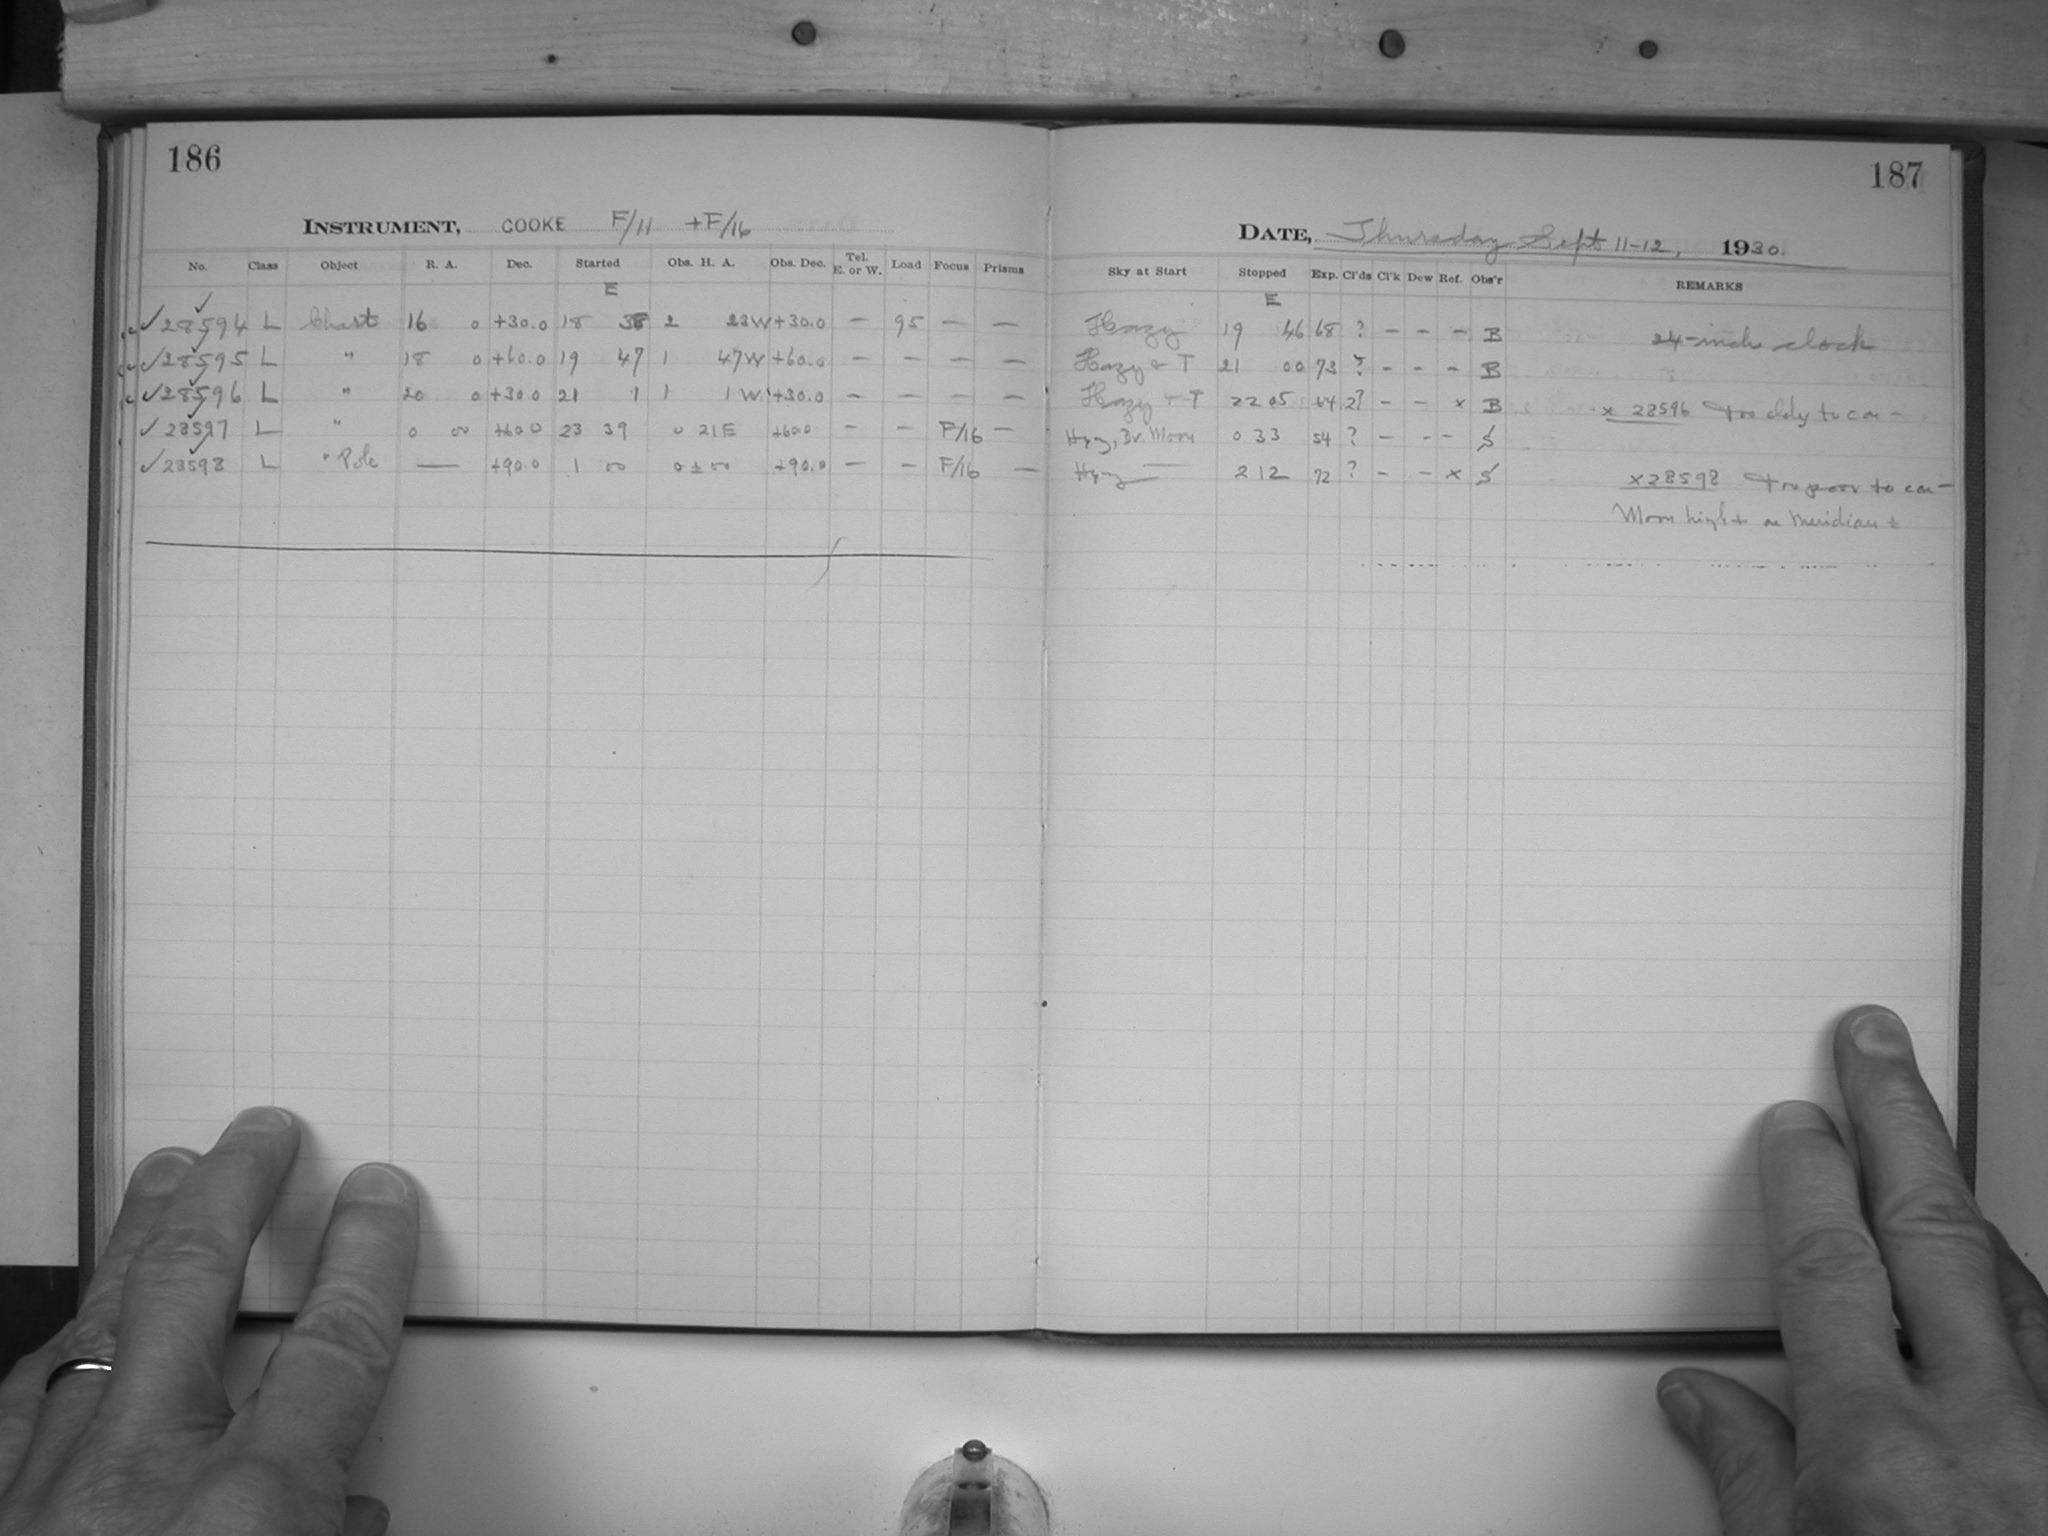 186
187
INSTRUMENT, COOKE F/11 +F/16
DATE, Thursday Sept 11-12, 1930.
No. Class Object R. A. Dec. Started Obs. H. A. Obs. Dec. Tel. E. or W. Load Focus Prisms
Sky at Start Stopped Exp. Cl'ds Cl'k Dew Ref. Obs'r REMARKS
E E
✓28594 L Chart 16 0 +30.0 18 38 2 23W +30.0 — 95 — — Hazy 19 46 68 ? — — — B 24-inch clock
✓28595 L " 18 0 +60.0 19 47 1 47W +60.0 — — — — Hazy & T 21 00 73 ? — — — B
✓28596 L " 20 0 +30.0 21 1 1 1W +30.0 — — — — Hazy + T 22 05 64 2? — — x B x 28596 Too cldy to con—
✓28597 L " 0 00 +60.0 23 39 0 21E +60.0 — — F/16 — Hazy, Br. Moon 0 33 54 ? — — — S
✓28598 L " Pole — +90.0 1 00 0 ± 00 +90.0 — — F/16 — Hazy — 2 12 72 ? — — x S x28598 Too poor to con—
Moon high + on Meridian ±